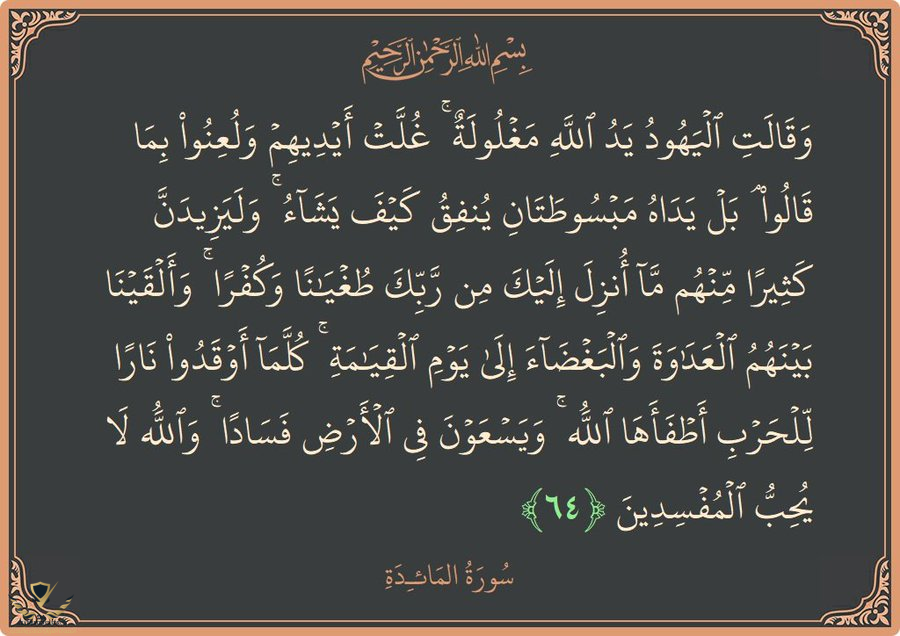 بِسْمِ ٱللَّهِ ٱلرَّحْمَٰنِ ٱلرَّحِيمِ
وَقَالَتِ ٱلْيَهُودُ يَدُ ٱللَّهِ مَغْلُولَةٌ ۚ غُلَّتْ أَيْدِيهِمْ وَلُعِنُوا۟ بِمَا
قَالُوا۟ ۘ بَلْ يَدَاهُ مَبْسُوطَتَانِ يُنفِقُ كَيْفَ يَشَآءُ ۚ وَلَيَزِيدَنَّ
كَثِيرًا مِّنْهُم مَّآ أُنزِلَ إِلَيْكَ مِن رَّبِّكَ طُغْيَٰنًا وَكُفْرًا ۚ وَأَلْقَيْنَا
بَيْنَهُمُ ٱلْعَدَٰوَةَ وَٱلْبَغْضَآءَ إِلَىٰ يَوْمِ ٱلْقِيَٰمَةِ ۚ كُلَّمَآ أَوْقَدُوا۟ نَارًا
لِّلْحَرْبِ أَطْفَأَهَا ٱللَّهُ ۚ وَيَسْعَوْنَ فِى ٱلْأَرْضِ فَسَادًا ۚ وَٱللَّهُ لَا
يُحِبُّ ٱلْمُفْسِدِينَ ﴿٦٤﴾
سُورَةُ المَائِدَةِ